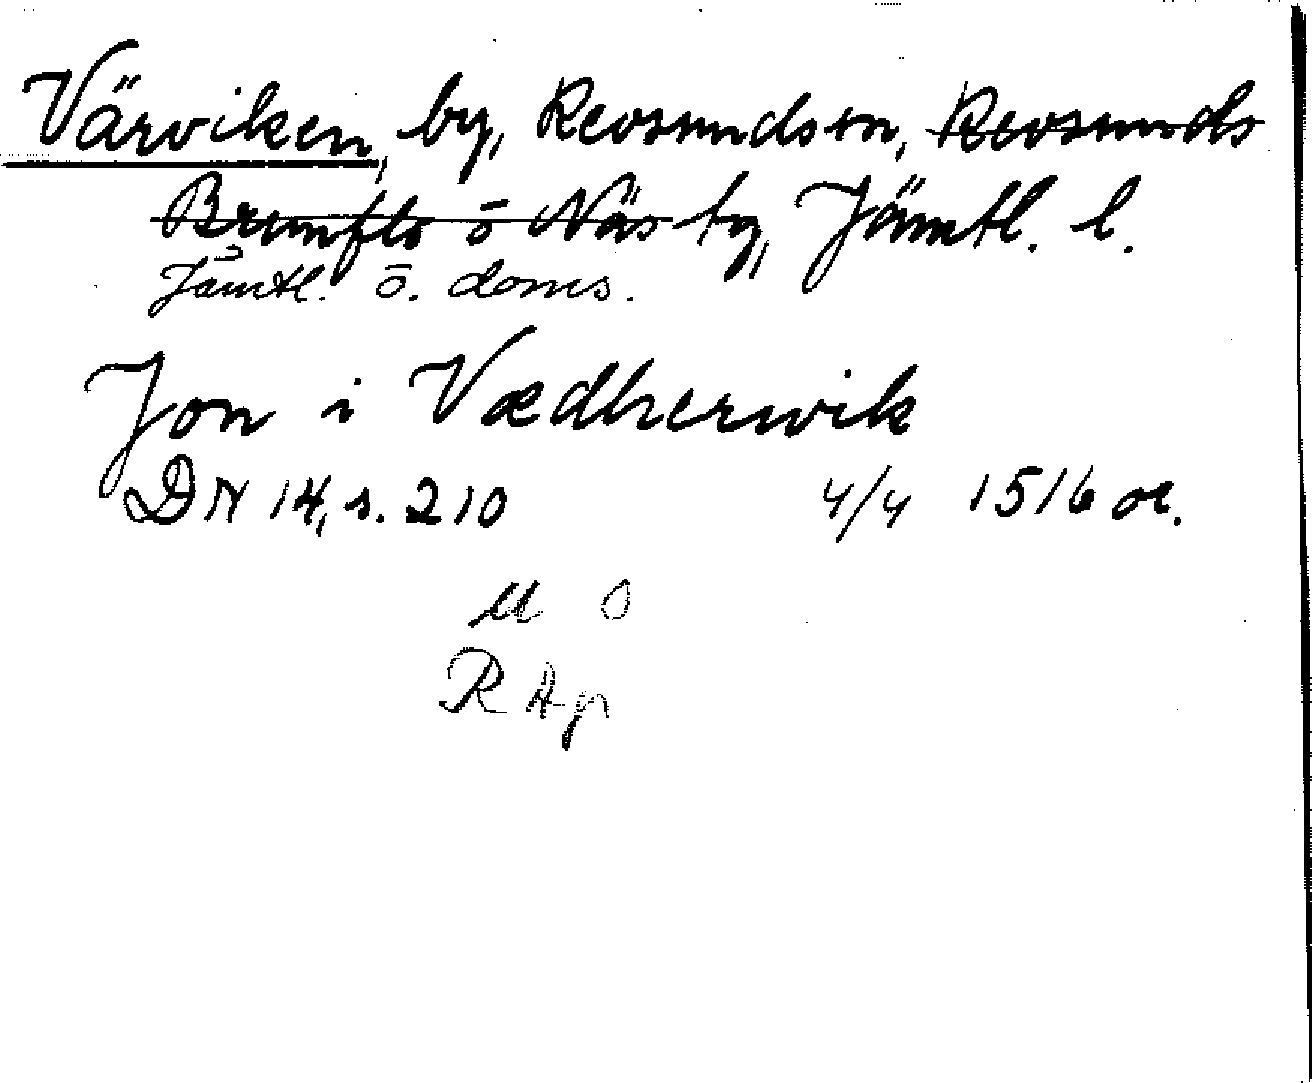 Värviken, by, Revsunds sn, Revsunds
Brunflo o Näs tg, Jämtl. l.
Jämtl. ö. doms.
Jon i Vædherwik
DN 14, s. 210 4/4 1516 or.